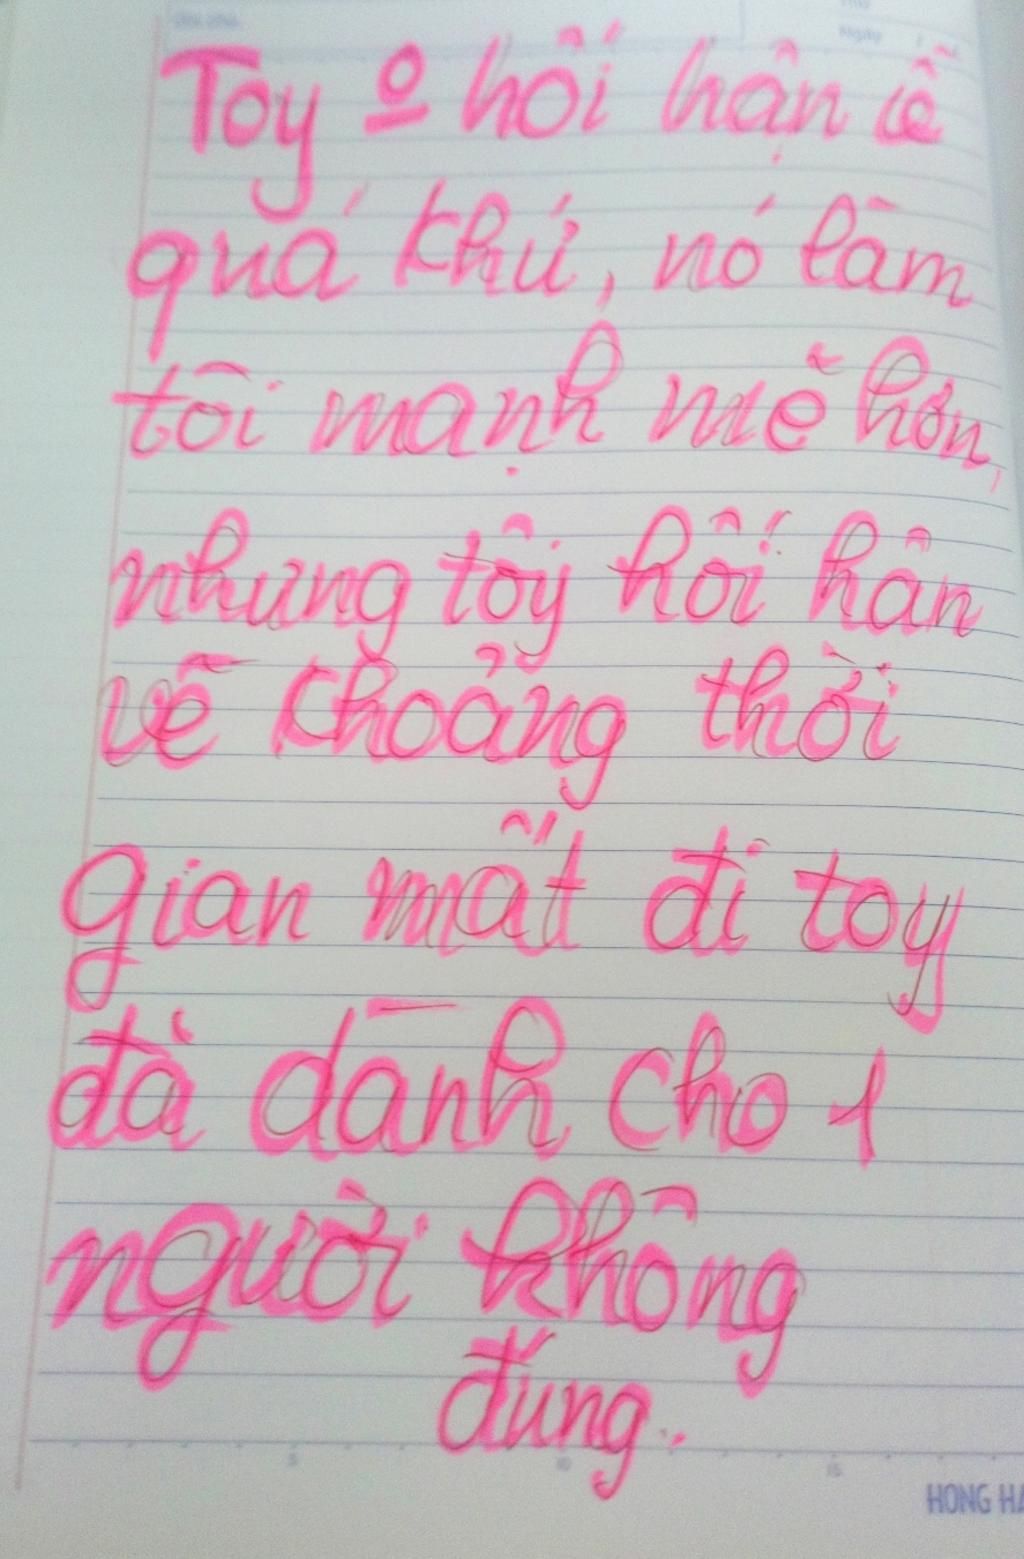 Toy o hối hận về
quá khứ, nó làm
tôi mạnh mẽ hơn,
nhưng tôy hối hân
vê khoảng thời
gian mất đi toy
đà dành cho 1
người không
đúng..
5 10 15
HONG HA